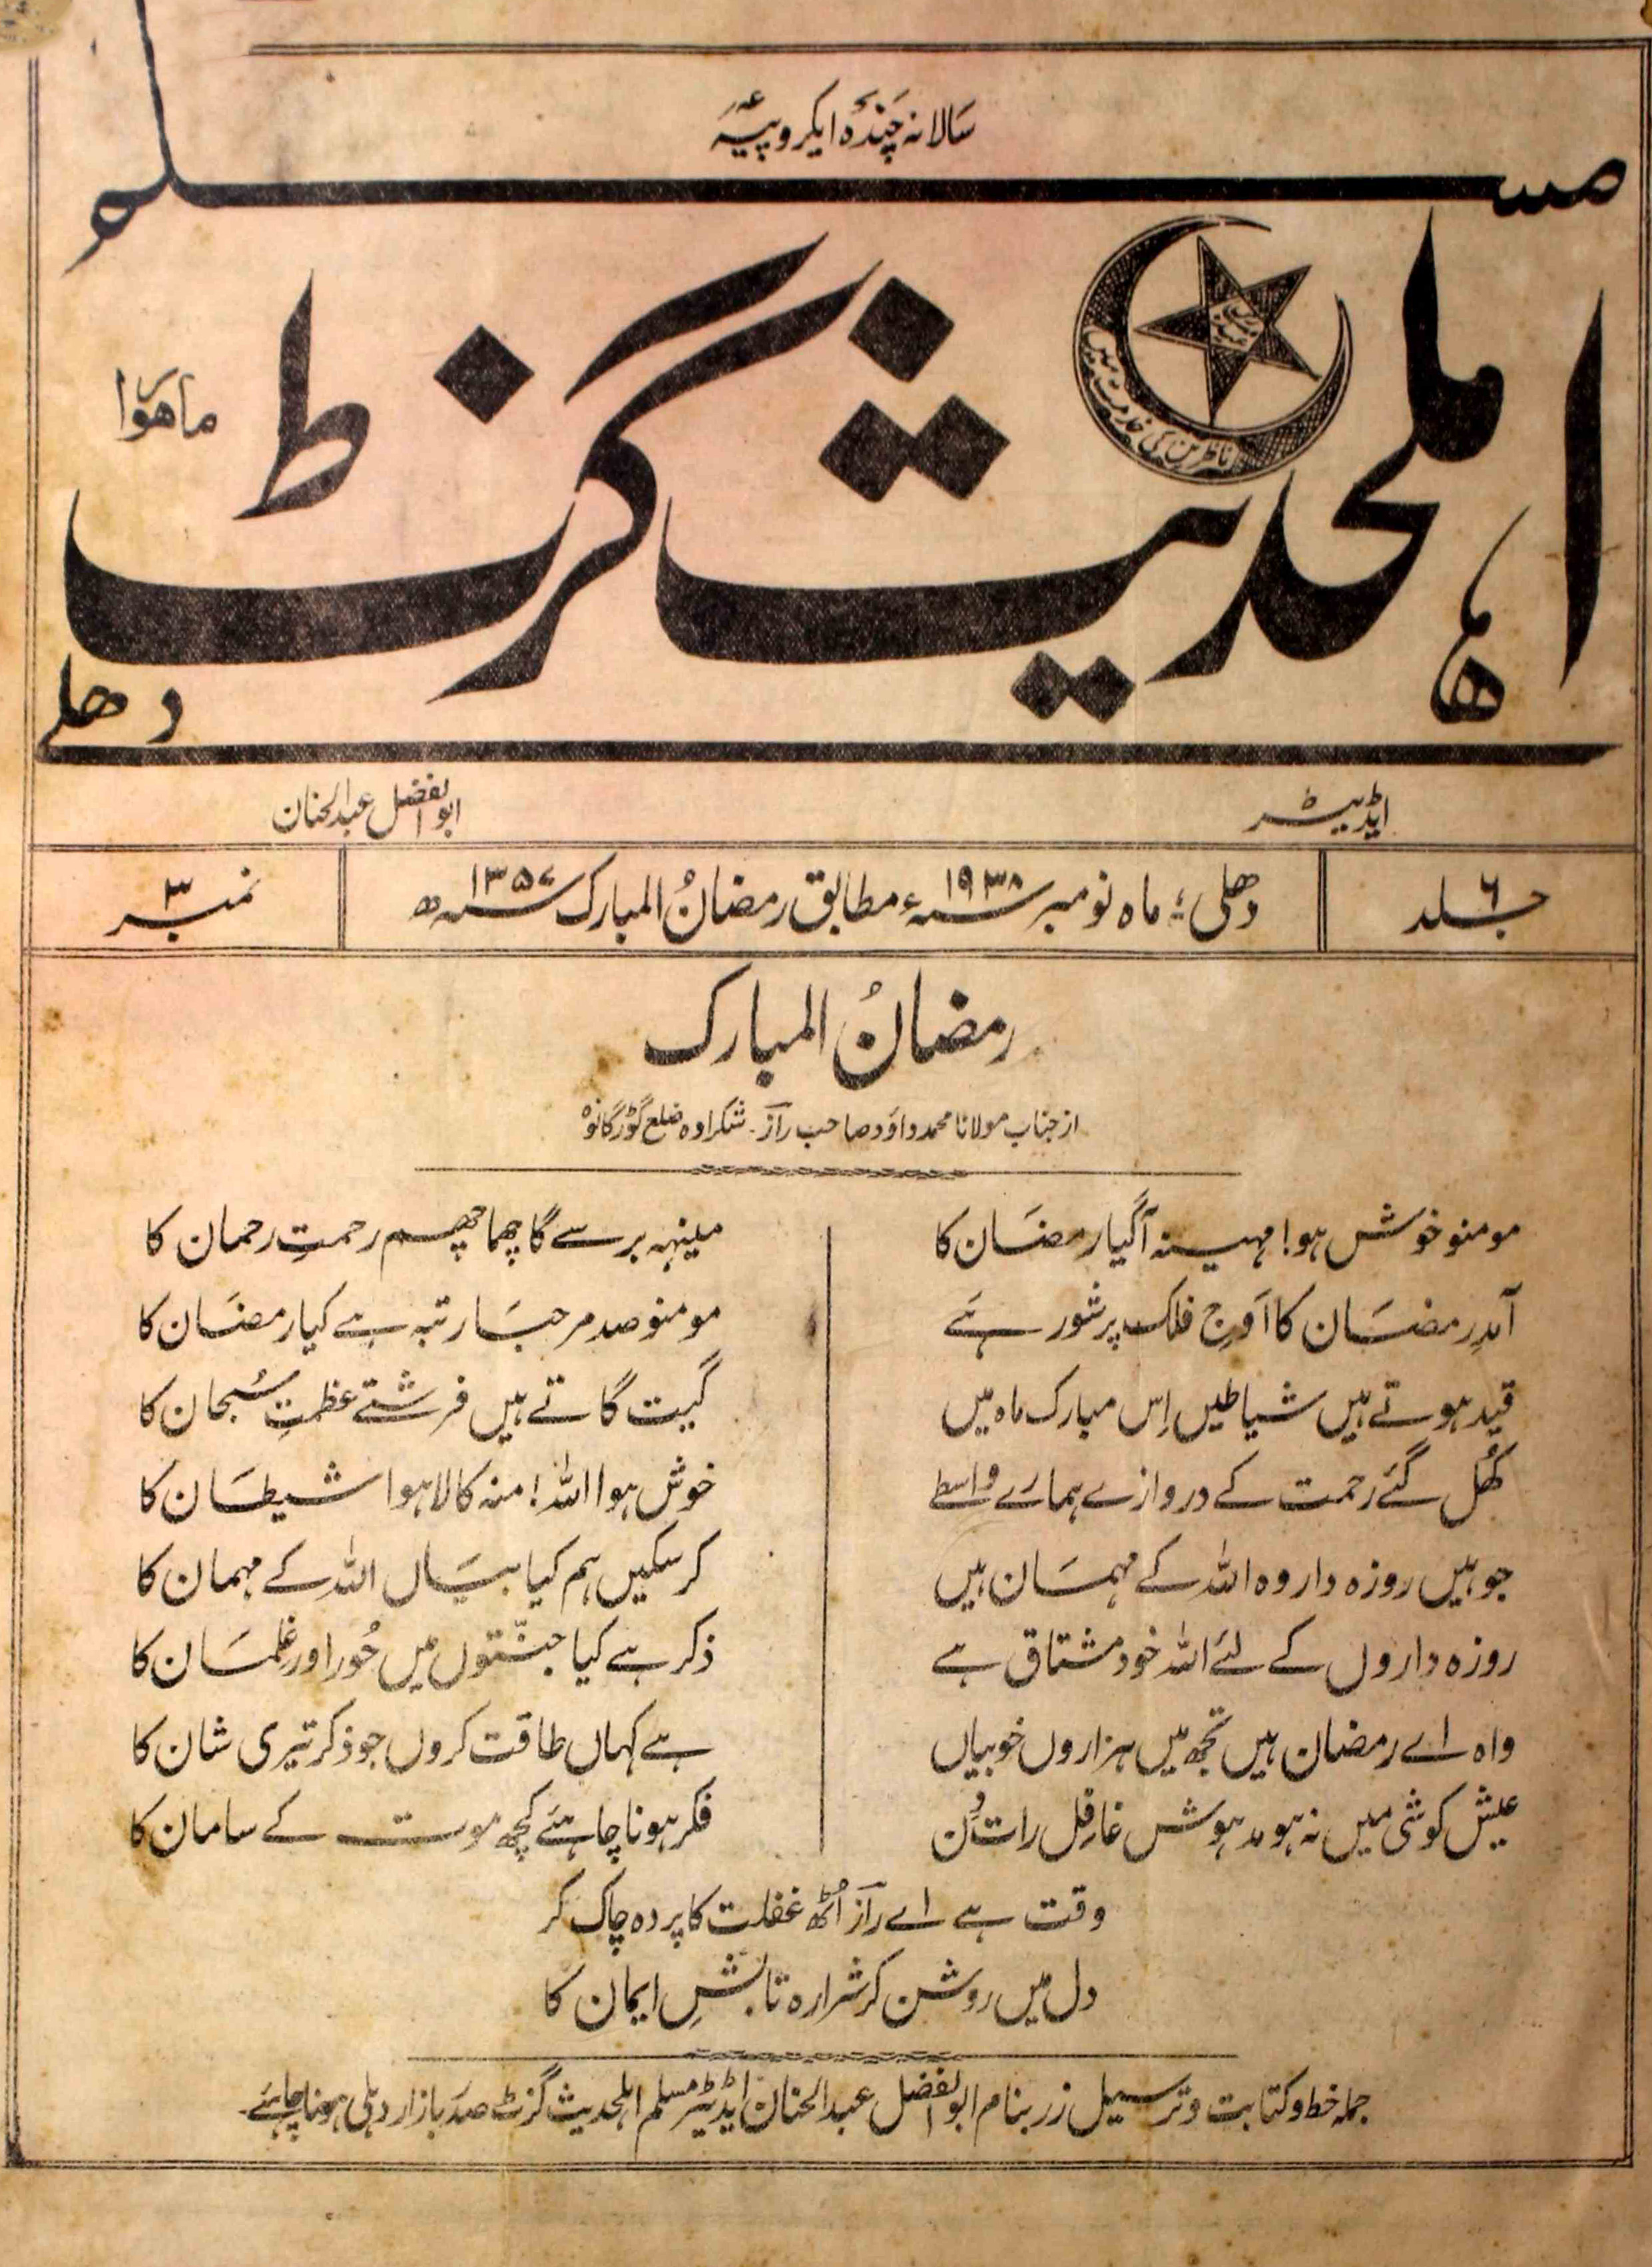 سالانہ چندہ ایکروپیہ
مسلم
اہلحدیث گزٹ
ماہوار
ناظرین کی خدمت میں
دھلی
ایڈیٹر
ابوالفضل عبدالحنان
جلد ۶
دھلی؛ ماہ نومبر سنہ ۱۹۳۸ء مطابق رمضانُ المبارک سنہ ۱۳۵۷ھ
نمبر ۳
رمضانُ المبارک
از جناب مولانا محمد داؤد صاحب رازؔ۔ شکراوہ ضلع گوڑگانوہ
مومنو خوش ہو! مہینہ آگیا رمضان کا
مینہہ برسے گا چھما چھم رحمتِ رحمان کا
آمدِ رمضان کا اَوجِ فلک پر شور ہے
مومنو صد مرحبا رتبہ ہے کیا رمضان کا
قید ہوتے ہیں شیاطیں اِس مبارک ماہ میں
گیت گاتے ہیں فرشتے عظمتِ سُبحان کا
کھُل گئے رحمت کے دروازے ہمارے واسطے
خوش ہوا اللہ! منہ کالا ہوا شیطان کا
جو ہیں روزہ دار وہ اللہ کے مہمان ہیں
کرسکیں ہم کیا بیاں اللہ کے مہمان کا
روزہ داروں کے لئے اللہ خود مشتاق ہے
ذکر ہے کیا جنّتوں میں حُور اور غِلمان کا
واہ اے رمضان ہیں تجھ میں ہزاروں خوبیاں
ہے کہاں طاقت کروں جو ذکر تیری شان کا
عیش کوشی میں نہ ہو مدہوش غافِل رات دُن
فکر ہونا چاہئے کچھ موت کے سامان کا
وقت ہے اے رازؔ اُٹھ غفلت کا پردہ چاک کر
دل میں روشن کر شرارہ تابشِ ایمان کا
جملہ خط و کتابت و ترسیل زر بنام ابوالفضل عبدالحنان ایڈیٹر مسلم اہلحدیث گزٹ صدر بازار دہلی ہونا چاہئے۔